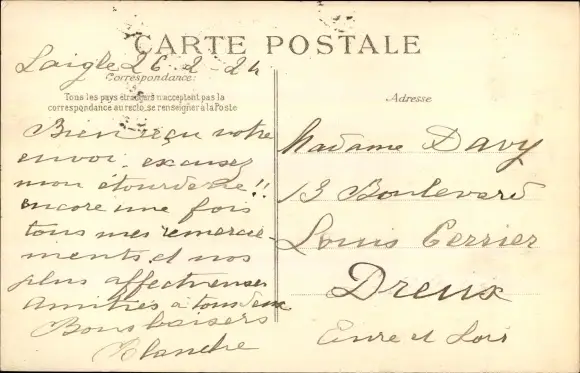 CARTE POSTALE
Laigle 26-2-24
Correspondance:
Tous les pays étrangers n'acceptent pas la
correspondance au recto, se renseigner à la Poste
Bien reçu votre
envoi, excusez
mon étourderie!!
encore une fois
tous mes remercie-
ments et nos
plus affectueuses
amitiés à tous deux
Bons baisers
Blanche
Adresse
Madame Davy
13 Boulevard
Louis Terrier
Dreux
Eure et Loir